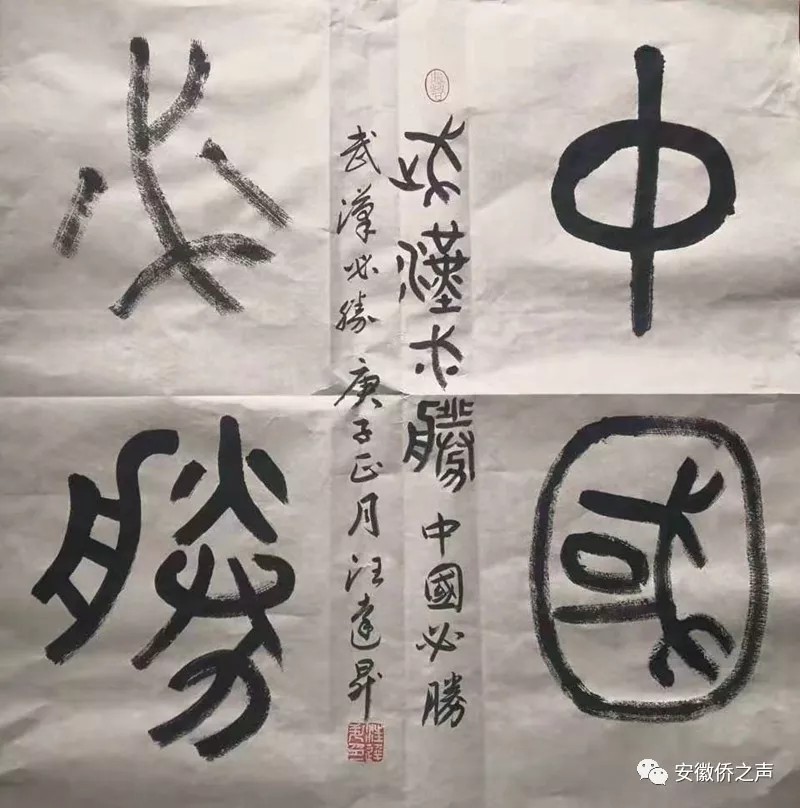 中國
必勝
武漢必勝 中國必勝
武漢必勝 庚子正月汪達昇
安徽侨之声